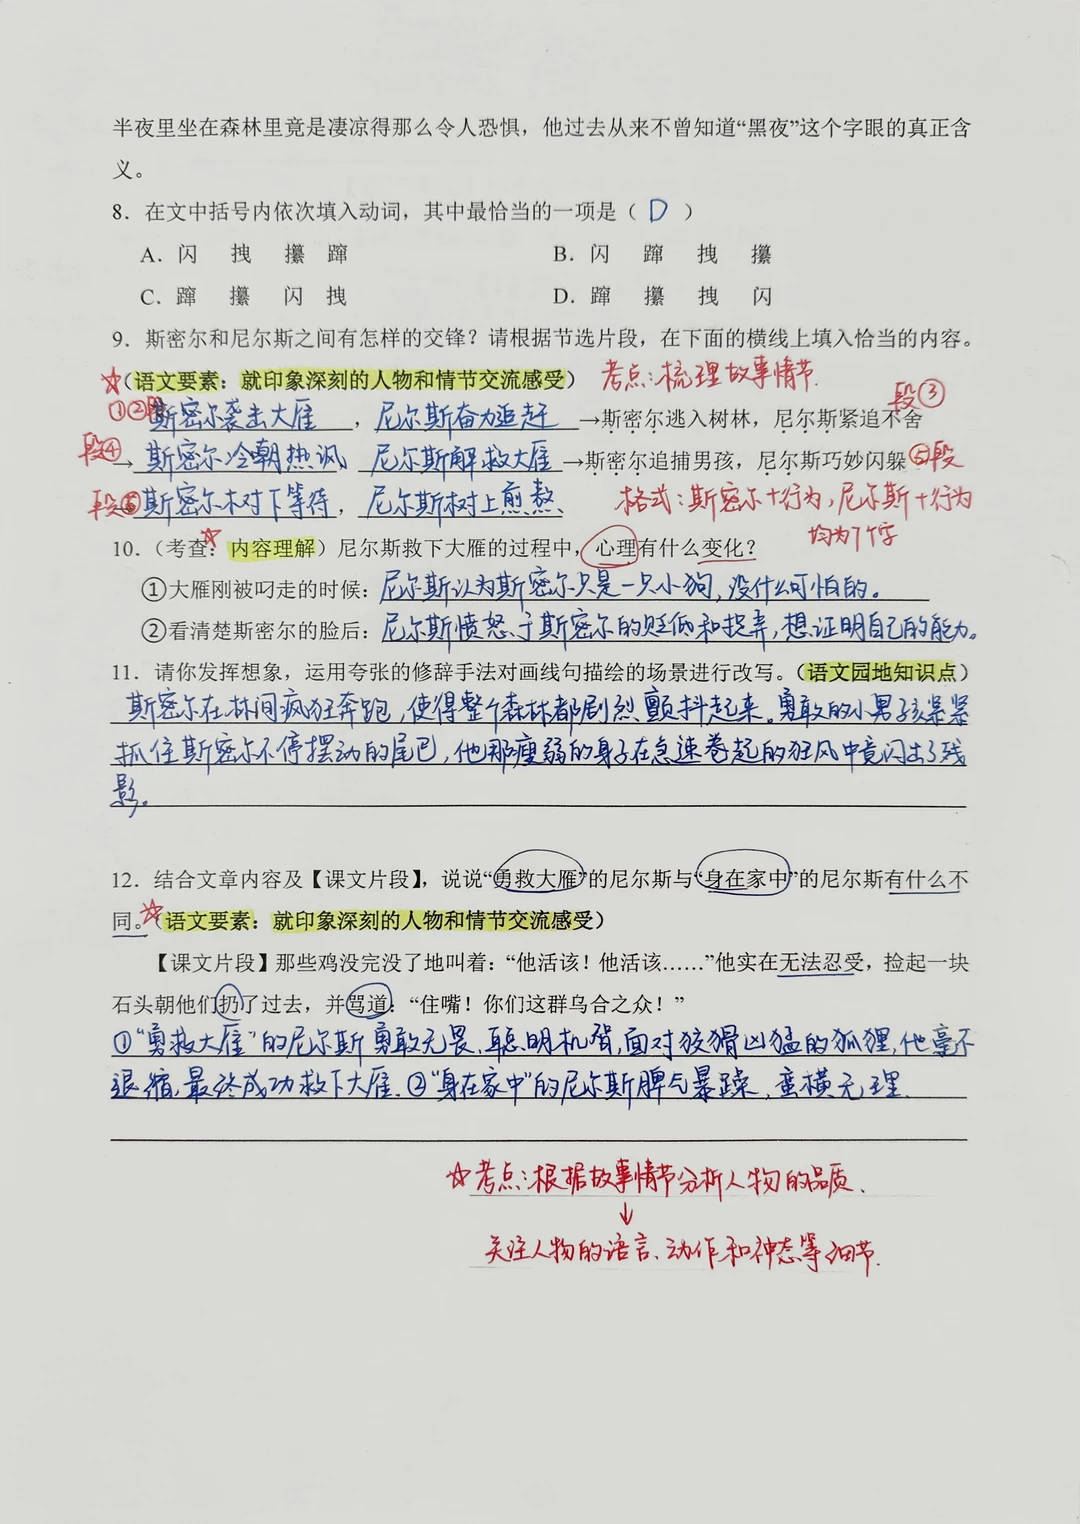 半夜里坐在森林里竟是凄凉得那么令人恐惧，他过去从来不曾知道“黑夜”这个字眼的真正含
义。
8．在文中括号内依次填入动词，其中最恰当的一项是（ D ）
A．闪 拽 攥 蹿 B．闪 蹿 拽 攥
C．蹿 攥 闪 拽 D．蹿 攥 拽 闪
9．斯密尔和尼尔斯之间有怎样的交锋？请根据节选片段，在下面的横线上填入恰当的内容。
☆（语文要素：就印象深刻的人物和情节交流感受） 考点：梳理故事情节.
段③
①②段 斯密尔袭击大雁，尼尔斯奋力追赶→斯密尔逃入树林，尼尔斯紧追不舍
段④→斯密尔冷嘲热讽，尼尔斯解救大雁→斯密尔追捕男孩，尼尔斯巧妙闪躲⑤段
段⑥→斯密尔木对下等待，尼尔斯树上煎熬 格式：斯密尔+行为，尼尔斯+行为
均为7个字
10．（考查：内容理解）尼尔斯救下大雁的过程中，心理有什么变化？
①大雁刚被叼走的时候：尼尔斯认为斯密尔只是一只小狗，没什么可怕的。
②看清楚斯密尔的脸后：尼尔斯愤怒于斯密尔的贬低和捉弄，想证明自己的能力。
11．请你发挥想象，运用夸张的修辞手法对画线句描绘的场景进行改写。（语文园地知识点）
斯密尔在林间疯狂奔跑，使得整个森林都剧烈颤抖起来。勇敢的小男孩紧紧
抓住斯密尔不停摆动的尾巴，他那瘦弱的身子在急速卷起的狂风中竟闪出了残
影。
12．结合文章内容及【课文片段】，说说“勇救大雁”的尼尔斯与“身在家中”的尼尔斯有什么不
同。☆（语文要素：就印象深刻的人物和情节交流感受）
【课文片段】那些鸡没完没了地叫着：“他活该！他活该……”他实在无法忍受，捡起一块
石头朝他们扔了过去，并骂道：“住嘴！你们这群乌合之众！”
①“勇救大雁”的尼尔斯勇敢无畏、聪明机智，面对狡猾凶猛的狐狸，他毫不
退缩，最终成功救下大雁.②“身在家中”的尼尔斯脾气暴躁、蛮横无理.
☆考点：根据故事情节分析人物的品质.
↓
关注人物的语言、动作和神态等细节.